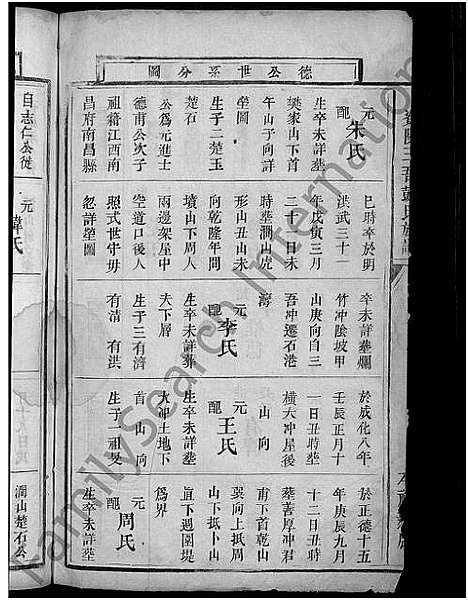 德公世系分圖
元
配朱氏
生卒未詳塟
樊家山下首
午山子向詳
塋圖
生子二楚玉
楚石
公為元進士
德甫公次子
祖籍江西南
昌府南昌縣
巳時卒於明
洪武三十一
年戊寅三月
二十日未
時塟澗山虎
形山丑山未
向乾隆年間
墳山下周人
兩邊架屋中
空道口後人
照式世守毋
忽詳塋圖
卒未詳塟爛
竹冲陰坡甲
山庚向自三
吾冲遷石港
灣
元
配李氏
生卒未詳葬
夫下層
生子三有濟
有清 有洪
於成化八年
壬辰正月十
一日丑時塟
橫大冲屋後
山向
元
配王氏
生卒未詳塟
大冲土地下
首 山 向
生子二祖旻
於正德十五
年庚辰九月
十二日丑時
葬善厚冲君
甫下首乾山
巽向上抵周
山下抵卜山
直下週圍堤
為界
元
配周氏
生卒未詳塟
自志仁公徙
元
韓氏
澗山楚石公
FamilySearch International